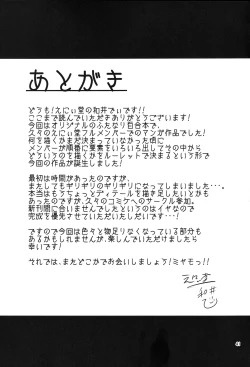 あとがき
どうも!えにぃ堂の和井でぃです!!
ここまで読んでいただきありがとうございます!
今回はオリジナルのふたなり百合本で、
久々のえにぃ堂フルメンバーでのマンガ作品でした!
何を描くかまだ決まっていなかった頃に
メンバーが順番に要素をいろいろ出してその中から
どういうのを描くかをルーレットで決めるという形で
今回の作品が誕生しました!
最初は時間があったのですが、
またしてもギリギリのギリギリになってしまいました…。
本当はもうちょっとディテールを描きたいとかも
あったのですが、久々のコミケへのサークル参加。
新刊間に合いませんでしたというのはイヤなので
完成を優先させていただいたしだいです…!
ですので今回は色々と物足りなくなっている部分も
あるかもしれませんが、楽しんでいただけましたら
幸いです!
それでは、またどこかでお会いしましょう!ミヤモッ!!